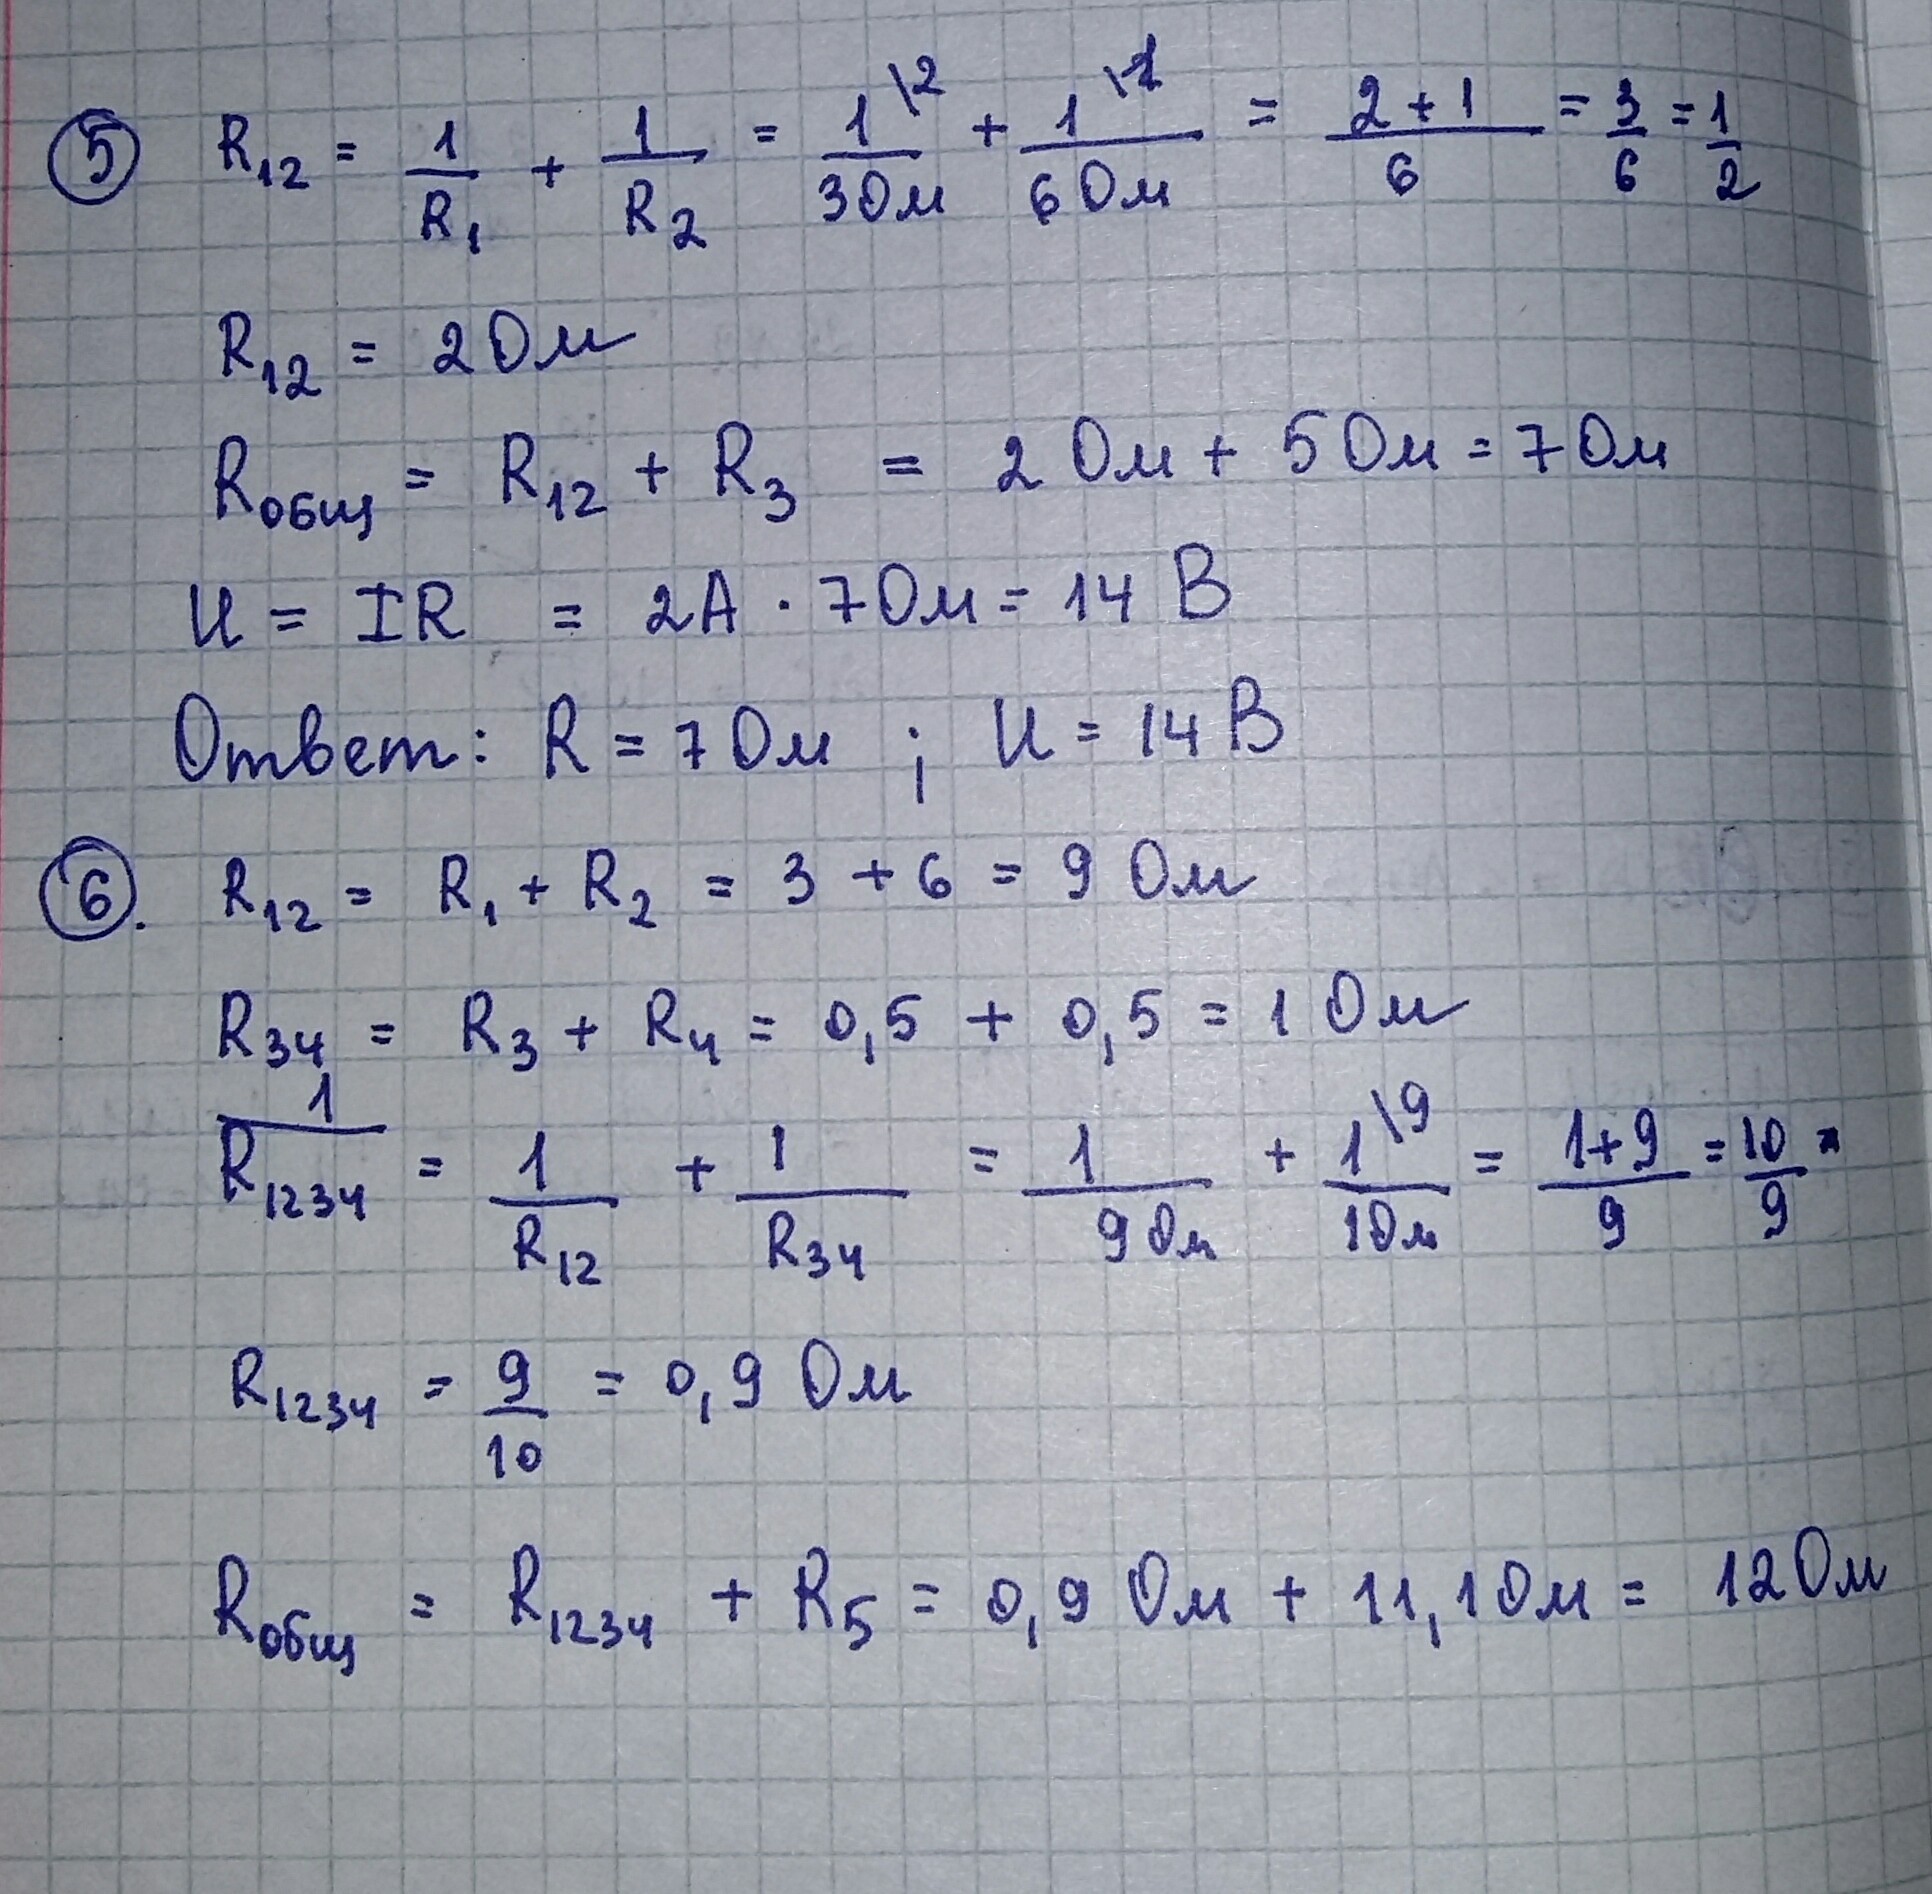 5 R12 = 1/R1 + 1/R2 = 1\2/3Ом + 1\1/6Ом = 2+1/6 = 3/6 = 1/2
R12 = 2Ом
Rобщ = R12 + R3 = 2 Ом + 5 Ом = 7 Ом
U = IR = 2А · 7Ом = 14 В
Ответ: R = 7 Ом ; U = 14 В
6. R12 = R1 + R2 = 3 + 6 = 9 Ом
R34 = R3 + R4 = 0,5 + 0,5 = 1 Ом
1/R1234 = 1/R12 + 1/R34 = 1/9Ом + 1\9/1Ом = 1+9/9 = 10/9
R1234 = 9/10 = 0,9 Ом
Rобщ = R1234 + R5 = 0,9 Ом + 11,1Ом = 12Ом